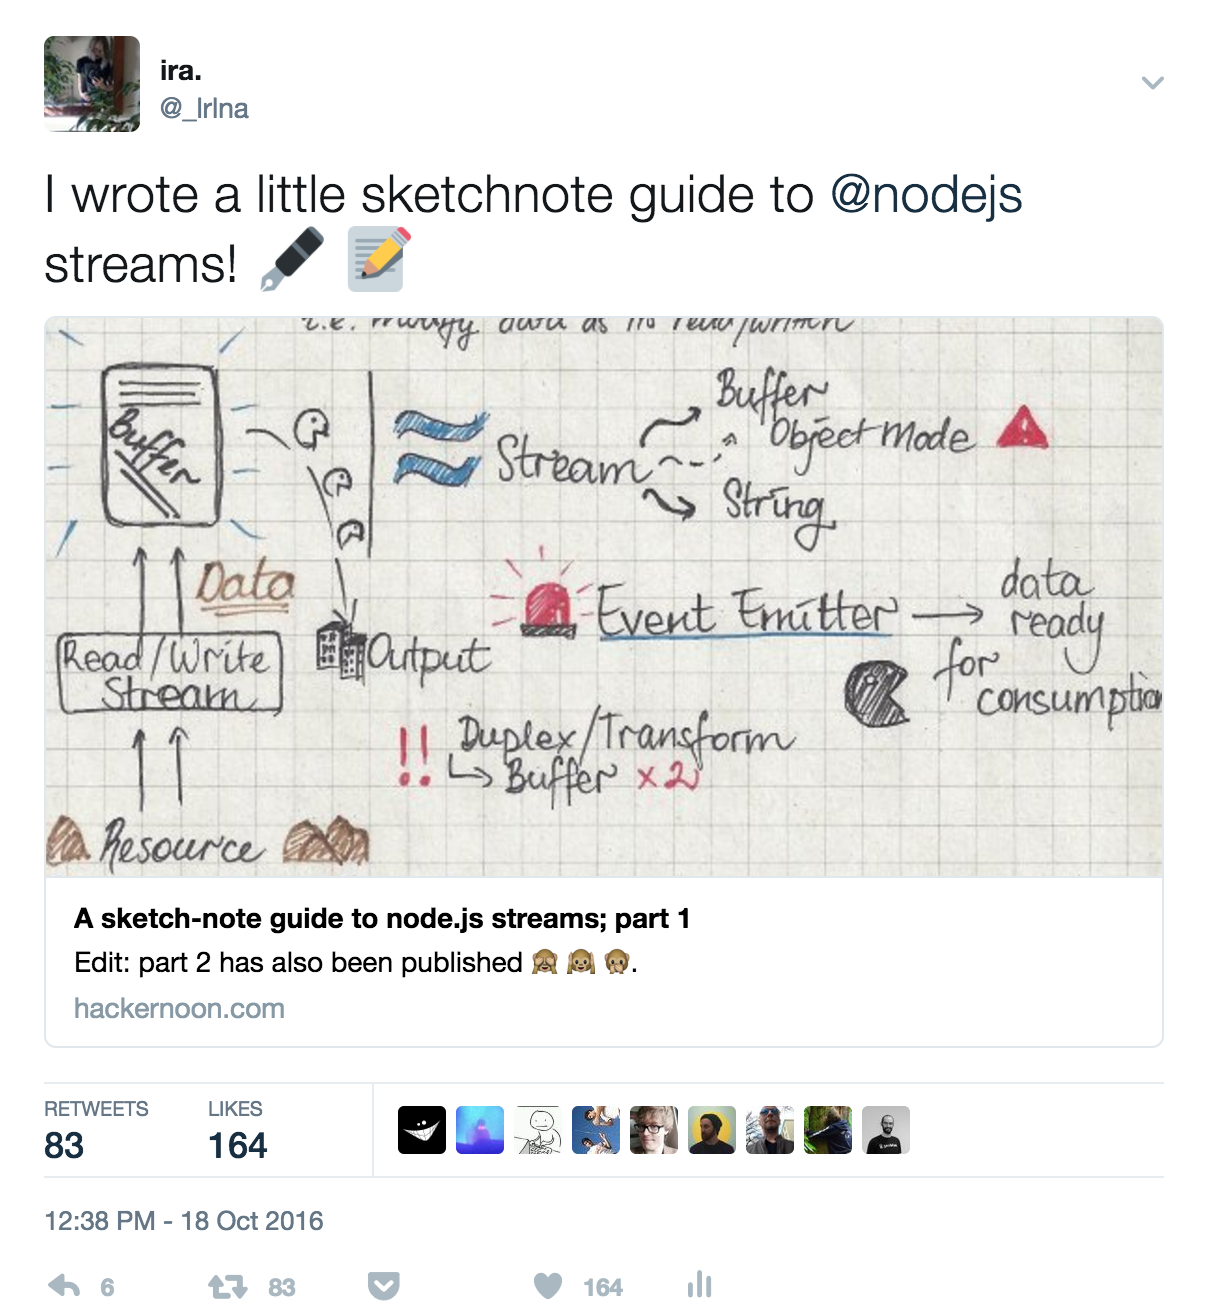 ira.
@_IrIna
I wrote a little sketchnote guide to @nodejs
streams!
i.e. modify data as its read/written
Buffer
Buffer
Object Mode
Stream
String
Data
Event Emitter
data
ready
for
consumption
Read/Write
Stream
Output
!! Duplex/Transform
Buffer x2
Resource
A sketch-note guide to node.js streams; part 1
Edit: part 2 has also been published 🙈 🙉 🙊.
hackernoon.com
RETWEETS LIKES
83 164
12:38 PM - 18 Oct 2016
6 83 164